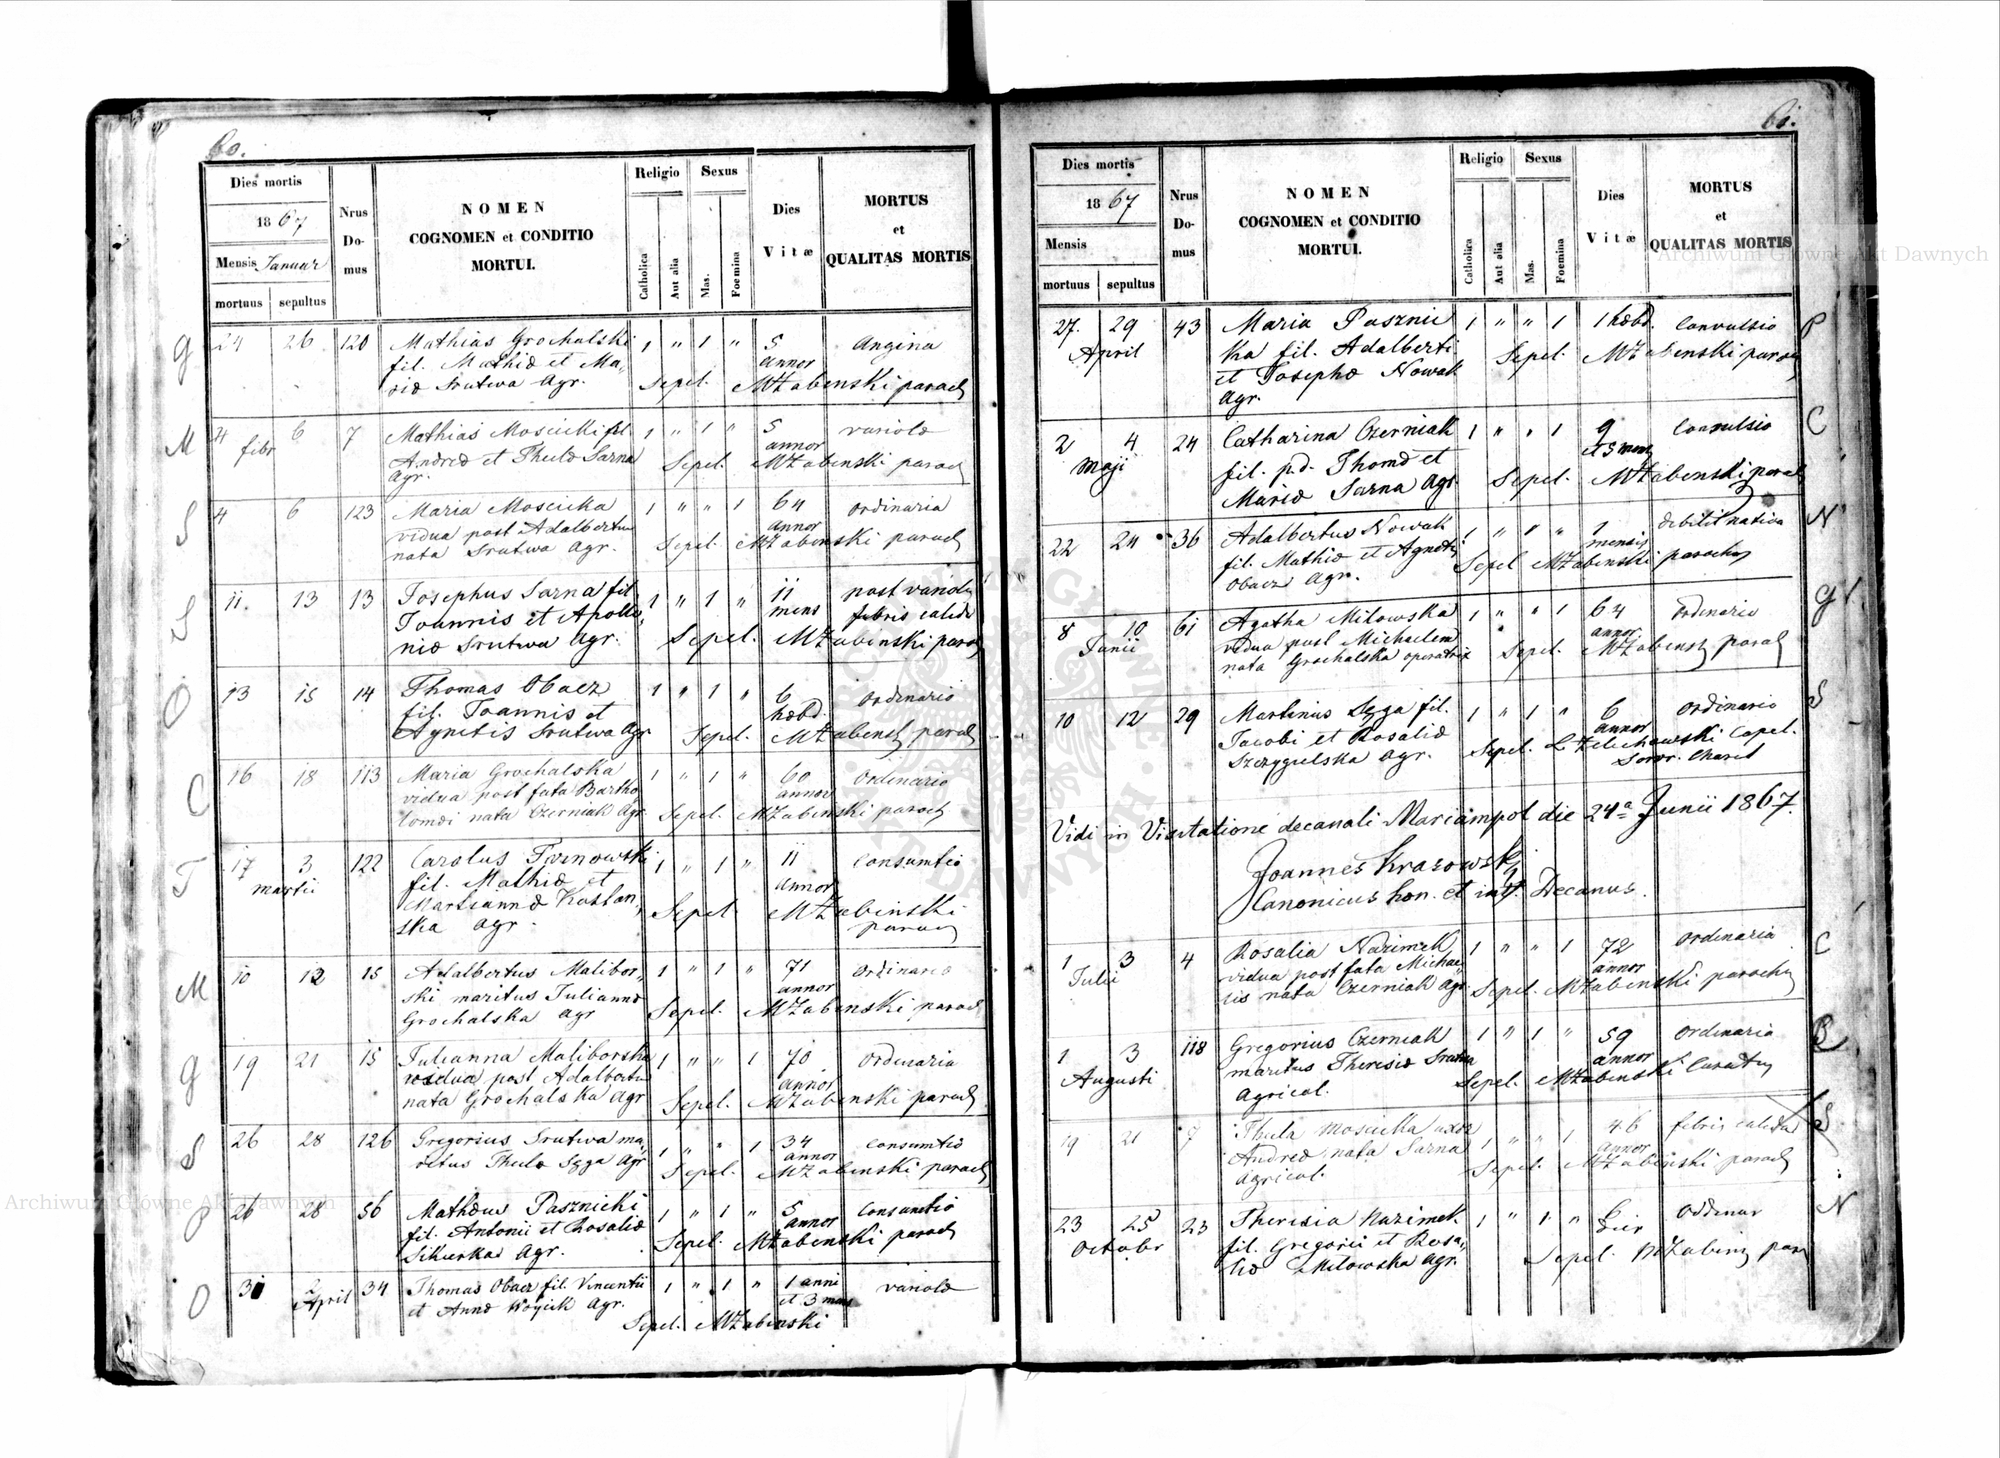 60.
Dies mortis
1867
Mensis Januar
mortuus sepultus
Nrus Do- mus
NOMEN
COGNOMEN et CONDITIO
MORTUI.
Religio
Catholica
Aut alia
Sexus
Mas.
Foemina
Dies
Vitæ
MORTUS
et
QUALITAS MORTIS
G 24 26 120 Mathias Grochalski 1 " 1 " 5 Angina
fil. Mathiæ et Ma, annor
riæ Srutwa Agr. Sepel. MŻabenski paroch
M 4 6 7 Mathias Moscicki fil 1 " 1 " 5 variolæ
febr Andreæ et Theclæ Sarna annor
Agr. Sepel. MŻabenski paroch
S 4 6 123 Maria Moscicka 1 " " 1 64 ordinaria
vidua post Adalbertum annor
nata Srutwa Agr. Sepel. MŻabenski paroch
S 11. 13 13 Josephus Sarna fil 1 " 1 " 11 post variolas
Joannis et Apollo, mens febris calida
niæ Srutwa Agr. Sepel. MŻabinski paroch
O 13 15 14 Thomas Obacz 1 " 1 " 6 ordinario
fil. Joannis et hebd.
Agnetis Srutwa Agr Sepel. MŻabensk paroch
C 16 18 113 Maria Grochalska 1 " 1 " 60 ordinario
vidua post fata Bartho annor
lomæi nata Czerniak Agr. Sepel. MŻabenski paroch
T 17 3 122 Carolus Tarnowski 1 " 1 " 11 Consumtio
martii fil. Mathiæ et annor
Mariannæ Kostan, Sepel MŻabinski
ska Agr. paroch
M 10 12 15 Adalbertus Malibor, 1 " 1 " 71 ordinario
ski maritus Juliannæ annor
Grochalska Agr Sepel. MŻabenski paroch
G 19 21 15 Julianna Maliborska 1 " " 1 70 ordinaria
vidua post Adalbertum annor
nata Grochalska Agr Sepel. MŻabenski paroch
S 26 28 126 Gregorius Srutwa ma, 1 " " 1 34 Consumtio
ritus Theclæ Syga Agr annor
Sepel. MŻabenski paroch
P 26 28 56 Mathæus Pasznicki 1 " 1 " 5 Consumtio
fil. Antonii et Rosaliæ annor
Sikierka Agr. Sepel. MŻabenski paroch
O 31 2 34 Thomas Obacz fil. Vincentii 1 " 1 " 1 anni variolæ
April et Annæ Woycik Agr. et 3 mens
Sepel. MŻabenski
61.
Dies mortis
1867
Mensis
mortuus sepultus
Nrus Do- mus
NOMEN
COGNOMEN et CONDITIO
MORTUI.
Religio
Catholica
Aut alia
Sexus
Mas.
Foemina
Dies
Vitæ
MORTUS
et
QUALITAS MORTIS
27. 29 43 Maria Pasznic 1 " " 1 1 hebd. Convulsio P
April ka fil. Adalberti Sepel. MŻabenski paroch
et Josephæ Nowak
Agr.
2 4 24 Catharina Czerniak 1 " " 1 9 Convulsio C
Maji fil. p.d. Thomæ et et 5 mens
Mariæ Sarna Agr Sepel. MŻabenski paroch
22 24 36 Adalbertus Nowak 1 " 1 " 1 debilit nativa N
fil. Mathiæ et Agnetis mensis
Obacz Agr. Sepel MŻabinski parochus
8 10 61 Agatha Milowska 1 " " 1 64 ordinario G
Junii vidua post Michaelem annor.
nata Grochalska operatrix Sepel. MŻabensk paroch
10 12 29 Martinus Syga fil. 1 " 1 " 6 ordinario S
Jacobi et Rosaliæ annor
Szczygielska Agr. Sepel. L Żelichowski Capel.
Soror. Charit
Vidi in Visitatione decanali Mariampol die 24ª Junii 1867.
Joannes Krasowski
Canonicus hon. et Decanus.
1 3 4 Rosalia Nazimek 1 " " 1 72 ordinaria C
Julii vidua post fata Michae, annor
lis nata Czerniak Agr Sepel. MŻabenski parochus
1 3 118 Gregorius Czerniak 1 " 1 " 59 ordinaria
Augusti maritus Theresiæ Srutwa annor
Agricol. Sepel. MŻabenski Curatus
19 21 7 Thecla Moscicka uxor 1 " " 1 46 febris calida S
Andreæ nata Sarna annor
Agricol. Sepel. MŻabinski paroch
23 25 23 Theresia Nazimek 1 " 1 " 6 Ordinar N
Octobr fil. Gregorii et Rosa, dier
liæ Milowska Agr. Sepel. MŻabins paro
Archiwum Główne Akt Dawnych
Archiwum Główne Akt Dawnych
ARCHIWUM GŁÓWNE AKT DAWNYCH